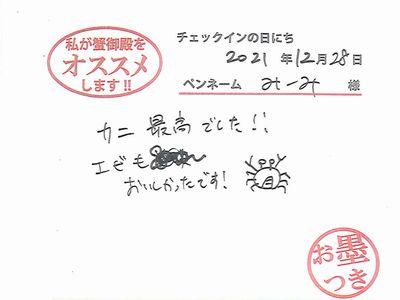 私が蟹御殿を
オススメ
します!!
チェックインの日にち
2021年12月28日
ペンネーム み-み 様
カニ 最高でした!!
エビも
おいしかったです!
お墨
つき